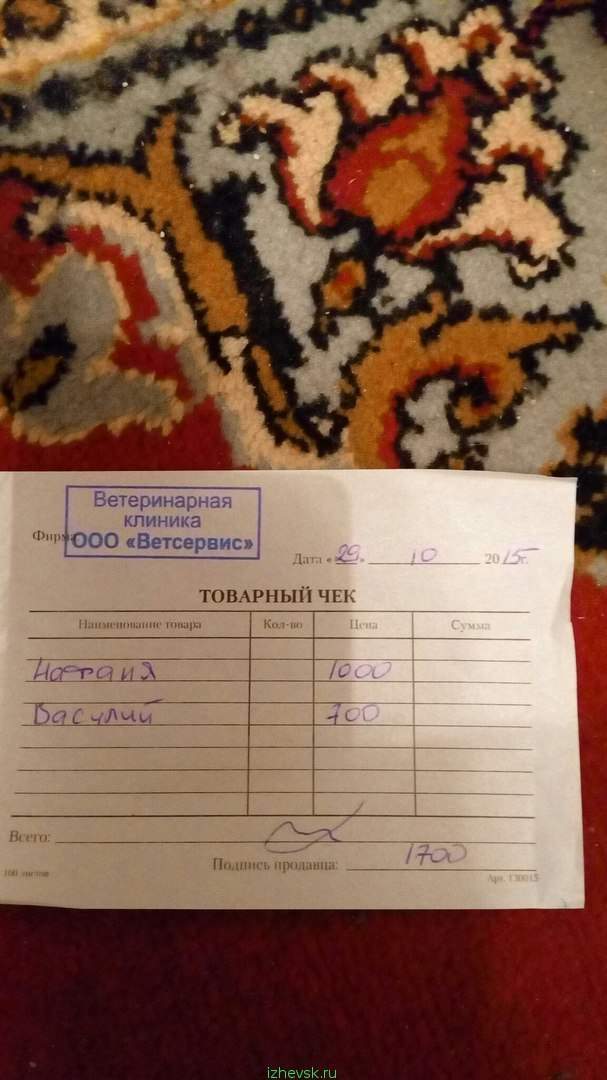 Ветеринарная
клиника
Фирма ООО «Ветсервис»
Дата «29» 10 2015г.
ТОВАРНЫЙ ЧЕК
Наименование товара Кол-во Цена Сумма
Натания 1000
Василий 700
Всего:
Подпись продавца: 1700
100 листов Арт. 130015
izhevsk.ru